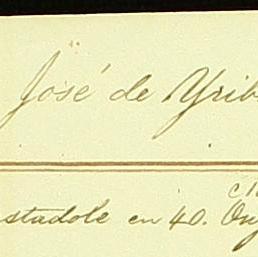 José de Yrib
stadole en 40.